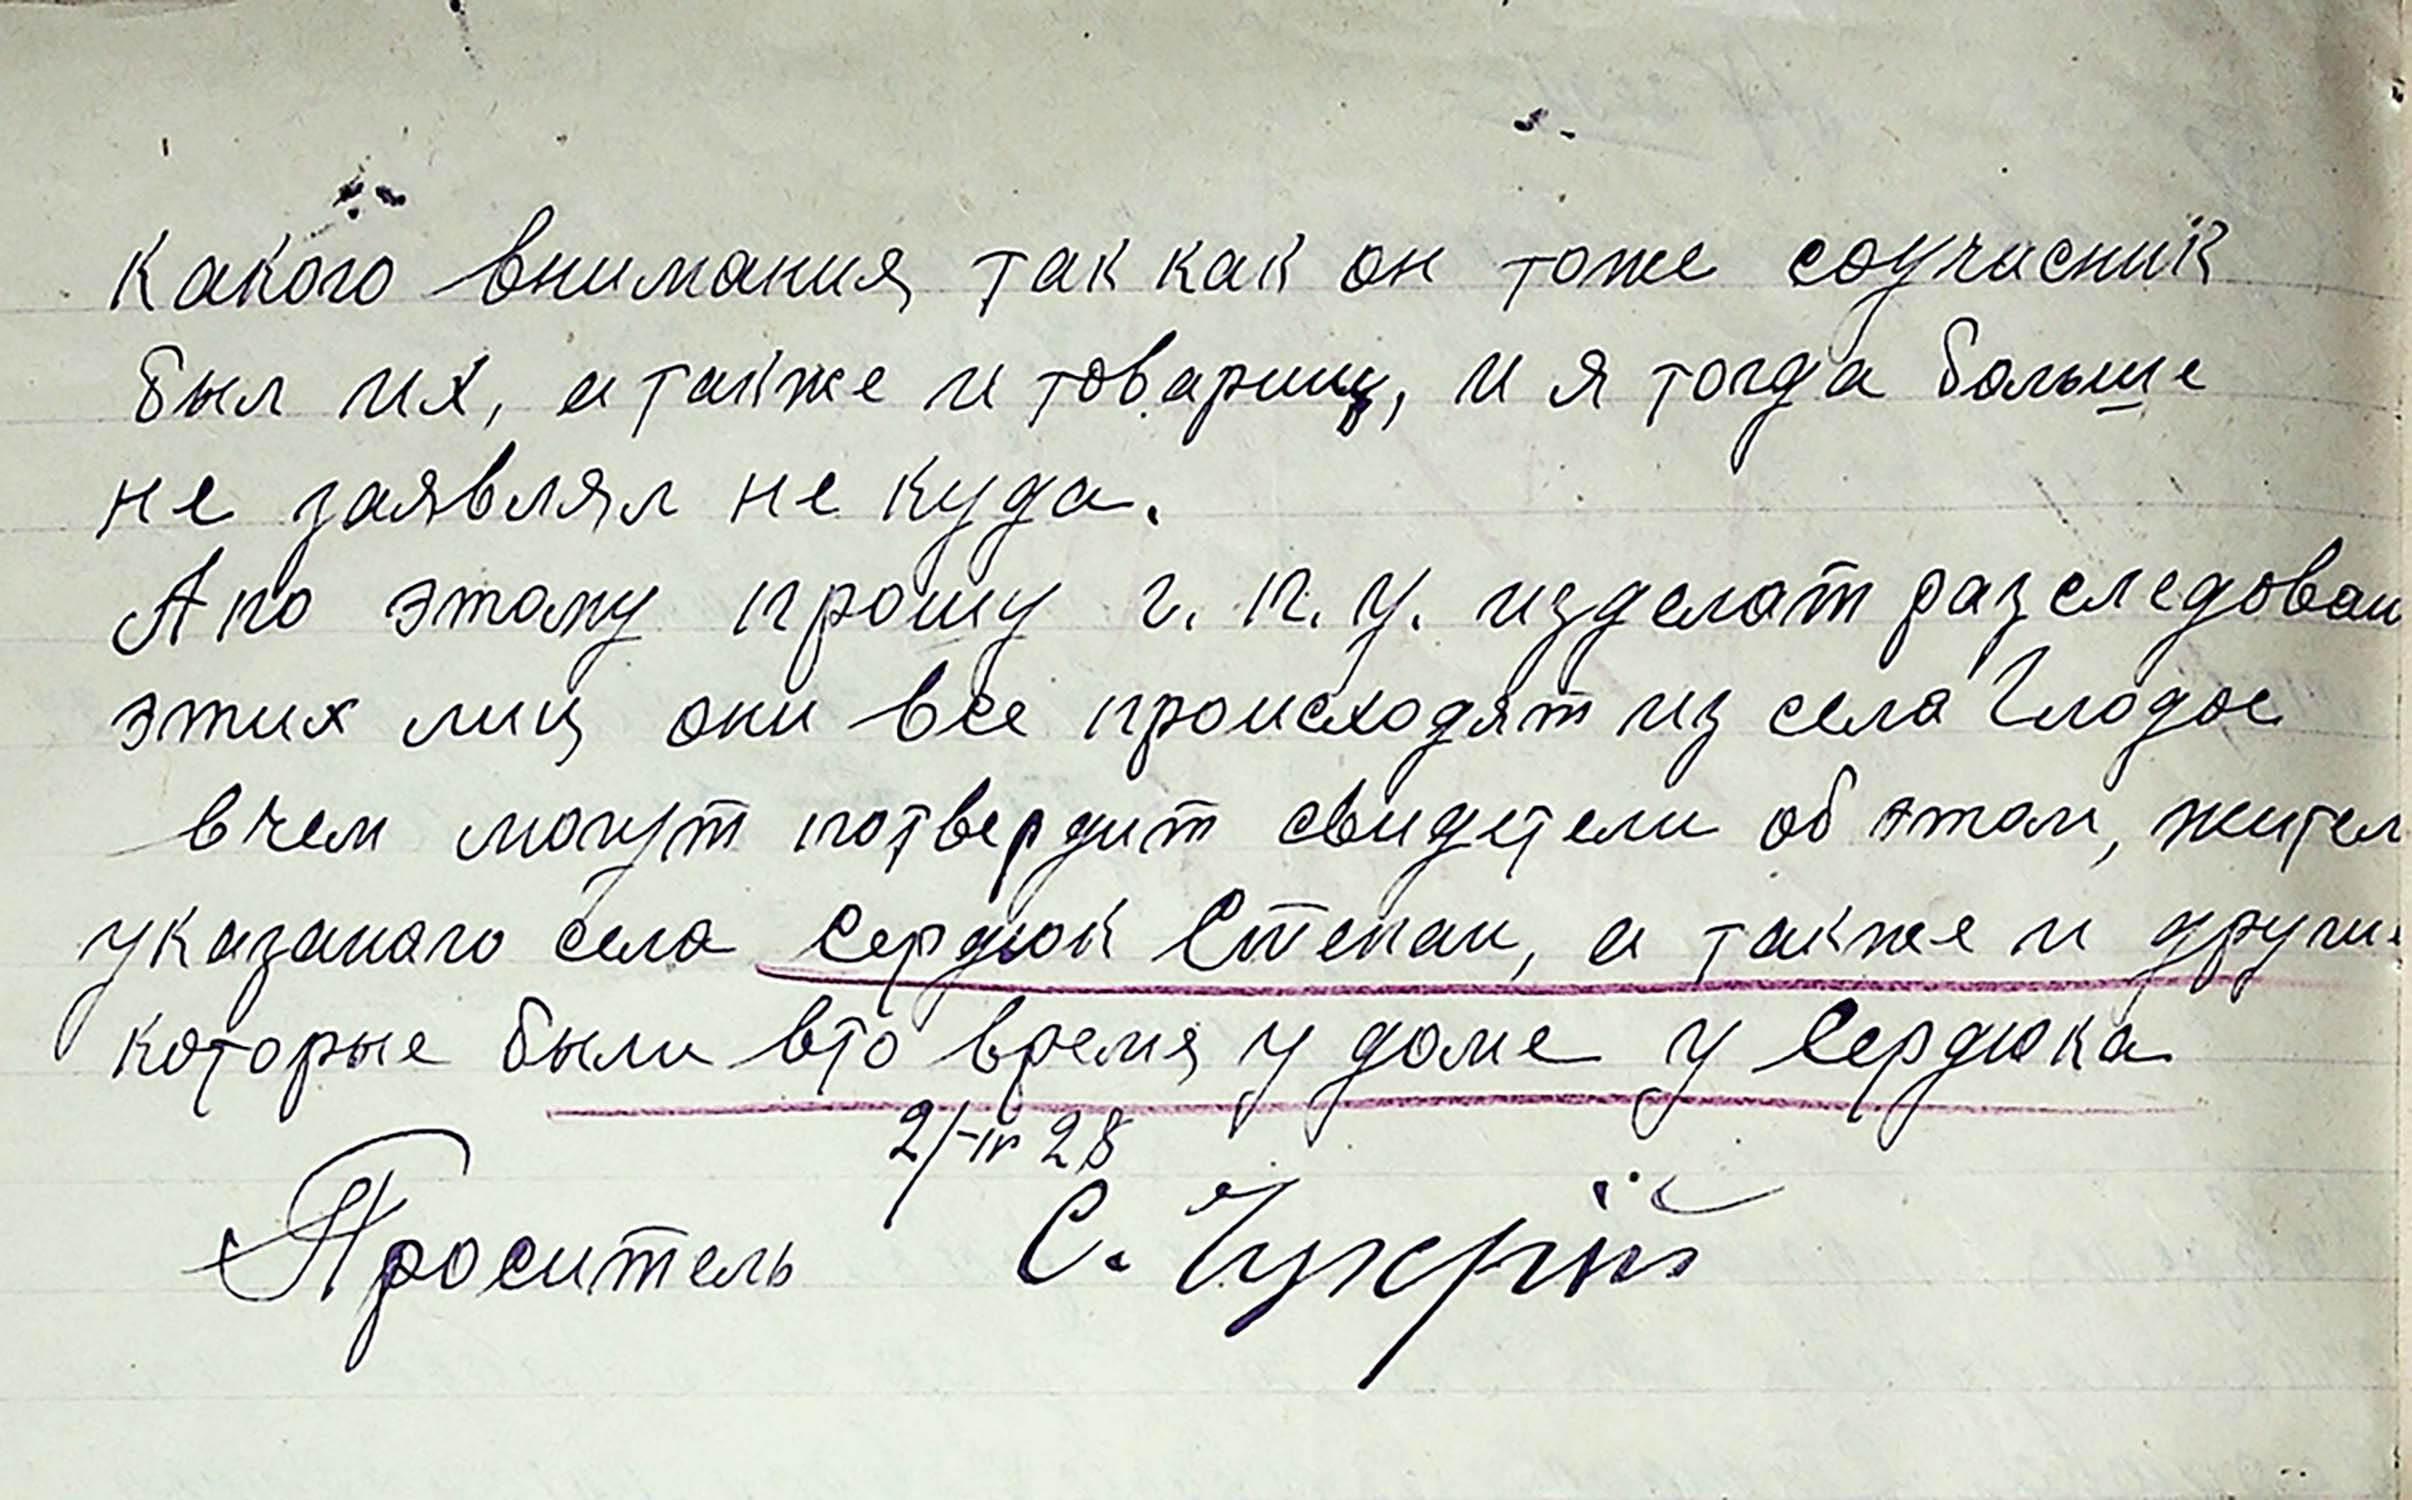 какого внимания, так как он тоже соучасник
был их, а также и товарищ, и я тогда больше
не заявлял не куда.
А по этому прошу г. п. у. изделат разследован
этих лиц они все происходят из села Глодос
в чем могут потвердит свидетели об этом, жител
указанаго села Сердюк Степан, а также и други
которые были вто время у доме у Сердюка
2/-IV 28
Проситель С. Чухрій